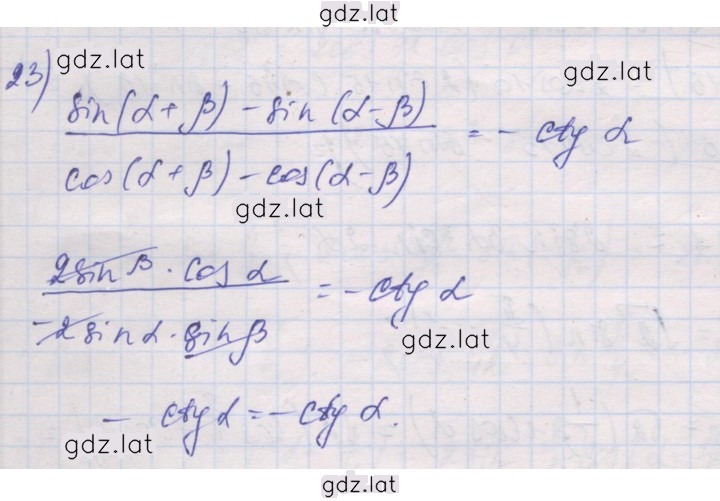 gdz.lat
23) gdz.lat
gdz.lat
sin(α+β) - sin(α-β)
= - ctg α
cos(α+β) - cos(α-β)
gdz.lat
2sin β · cos α
= -ctg α
-2 sin α · sin β
gdz.lat
- ctg α = -ctg α.
gdz.lat
gdz.lat